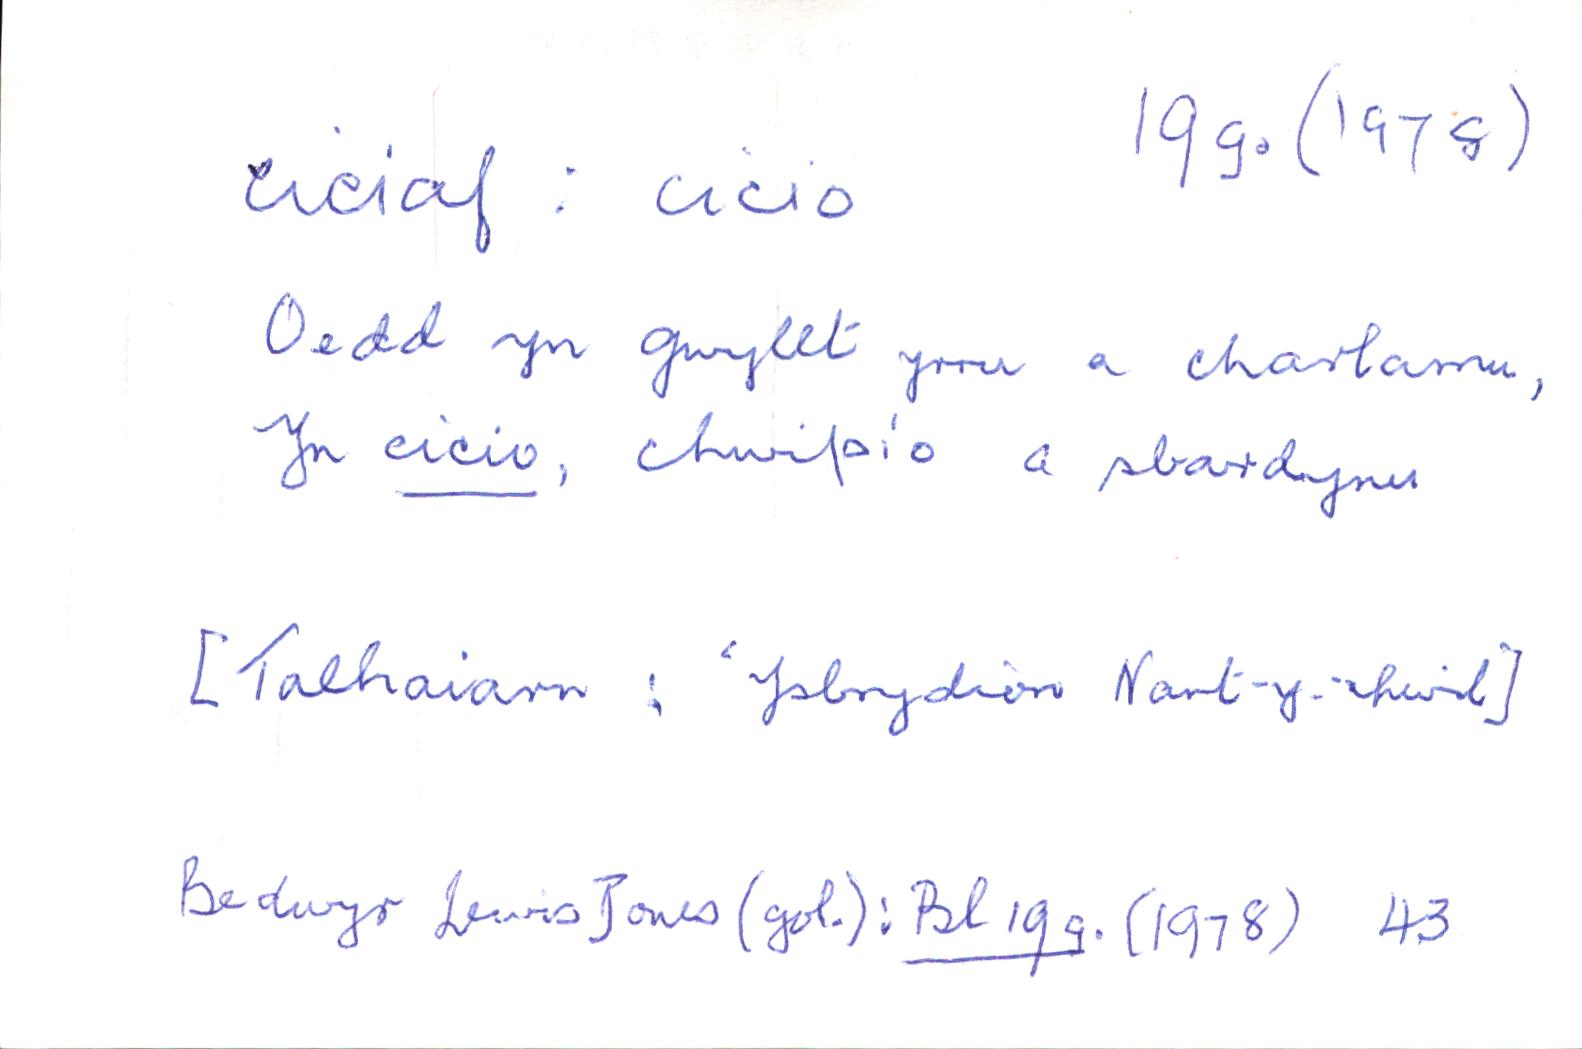 19g. (1978)
ciciaf : cicio
Oedd yn gwyllt yrru a charlamu,
Yn cicio, chwipio a sbardynu
[Talhaiarn : 'Ysbrydion Nant-y-chwil]
Bedwyr Lewis Jones (gol.): Bl 19g. (1978) 43